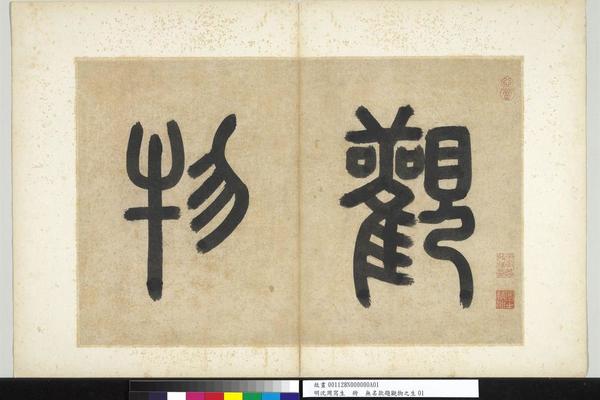 觀
物
故畫001128N000000A01
明沈周寫生 冊 無名款題觀物之生 01